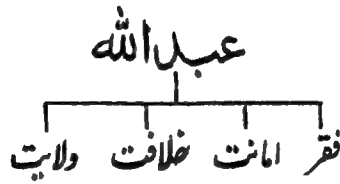 عبداللہ
فقر امانت خلافت ولایت